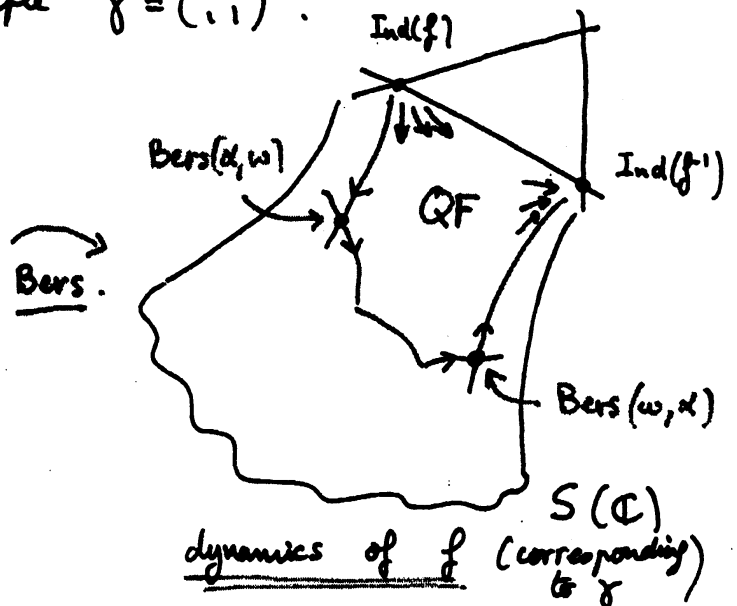 γ = (1 1).
Ind(f)
Bers(α,ω)
Ind(f⁻¹)
QF
Bers.
Bers(ω,α)
S(ℂ)
dynamics of f (corresponding
to γ
)